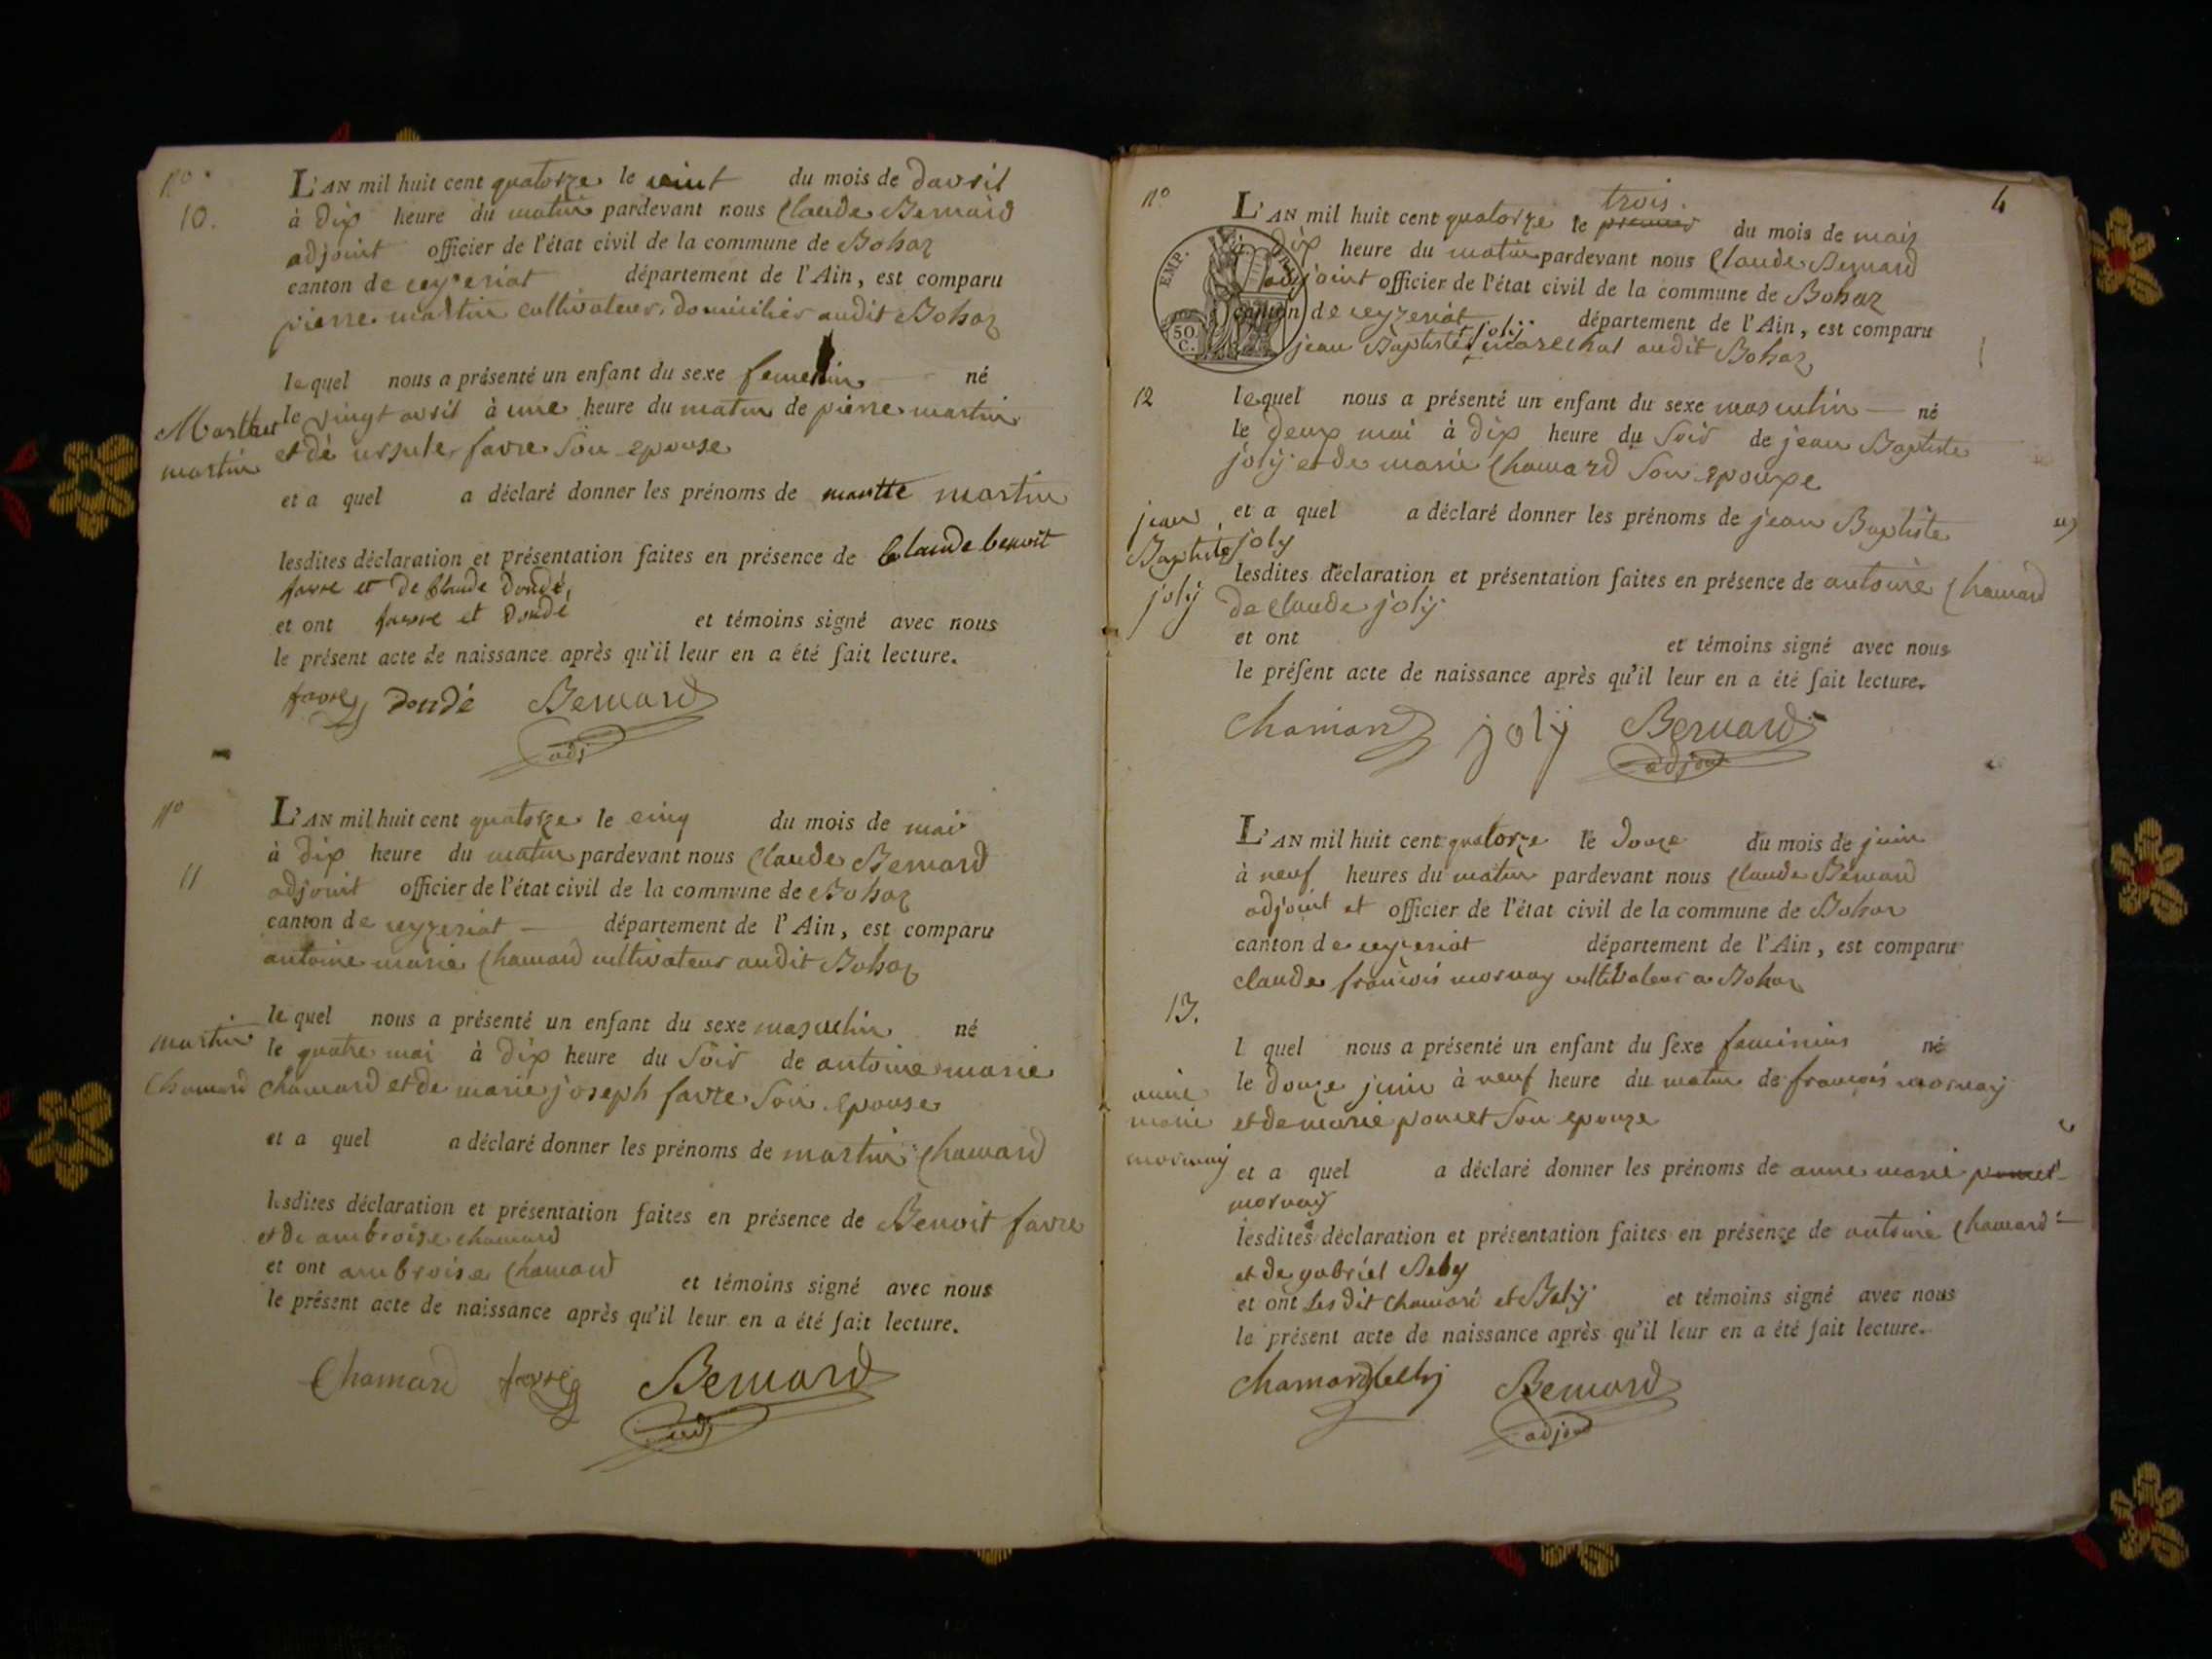 n°
10.
L'AN mil huit cent quatorze le vint du mois de davril
à dix heure du matin pardevant nous Claude Bernard
adjoint officier de l'état civil de la commune de Bohaz
canton de ceyzeriat département de l'Ain, est comparu
pierre martin cultivateur domicilier audit Bohaz
lequel nous a présenté un enfant du sexe né
le vingt avril à une heure du matin de pierre martin
et de ursule favre son epouse
martin
et a quel a déclaré donner les prénoms de martin
lesdites déclaration et présentation faites en présence de Claude benoit
favre et de Claude Doudé,
et ont favre et Doudé et témoins signé avec nous
le présent acte de naissance après qu'il leur en a été fait lecture.
favre Doudé Bernard
adj
n°
11
L'AN mil huit cent quatorze le cinq du mois de mai
à dix heure du matin pardevant nous Claude Bernard
adjoint officier de l'état civil de la commune de Bohaz
canton de ceyzeriat département de l'Ain, est comparu
antoine marie Chamard cultivateur audit Bohaz
martin
Chamard
lequel nous a présenté un enfant du sexe masculin né
le quatre mai à dix heure du soir de antoine marie
chamard et de marie joseph favre son epouse
et a quel a déclaré donner les prénoms de martin Chamard
lesdites déclaration et présentation faites en présence de Benoit favre
et de ambroise chamard
et ont ambroise Chamard et témoins signé avec nous
le présent acte de naissance après qu'il leur en a été fait lecture.
Chamard favre Bernard
adj
4
n°
12
EMP.
50
C.
trois.
L'AN mil huit cent quatorze le premier du mois de mai
à dix heure du matin pardevant nous Claude Bernard
adjoint officier de l'état civil de la commune de Bohaz
canton de ceyzeriat département de l'Ain, est comparu
jean Baptiste joly marechal audit Bohaz
lequel nous a présenté un enfant du sexe masculin né
le deux mai à dix heure du soir de jean Baptiste
joly et de marie Chamard son epouxe
jean
Baptiste
joly
et a quel a déclaré donner les prénoms de jean Baptiste
joly
lesdites déclaration et présentation faites en présence de antoine Chamard
de Claude joly
et ont et témoins signé avec nous
le présent acte de naissance après qu'il leur en a été fait lecture.
Chamard joly Bernard
adjoint
13.
L'AN mil huit cent quatorze le douze du mois de juin
à neuf heures du matin pardevant nous Claude Bernard
adjoint et officier de l'état civil de la commune de Bohaz
canton de ceyzeriat département de l'Ain, est comparu
claude françois mornay cultivateur a Bohaz
l quel nous a présenté un enfant du sexe né
le douze juin à neuf heure du matin de françois mornay
et de marie poncet son epouze
anne
marie
mornay
et a quel a déclaré donner les prénoms de anne marie poncet
mornay
lesdites déclaration et présentation faites en présence de antoine Chamard
et de gabriel
et ont Les dit chamard et et témoins signé avec nous
le présent acte de naissance après qu'il leur en a été fait lecture.
Chamard Bernard
adjoint